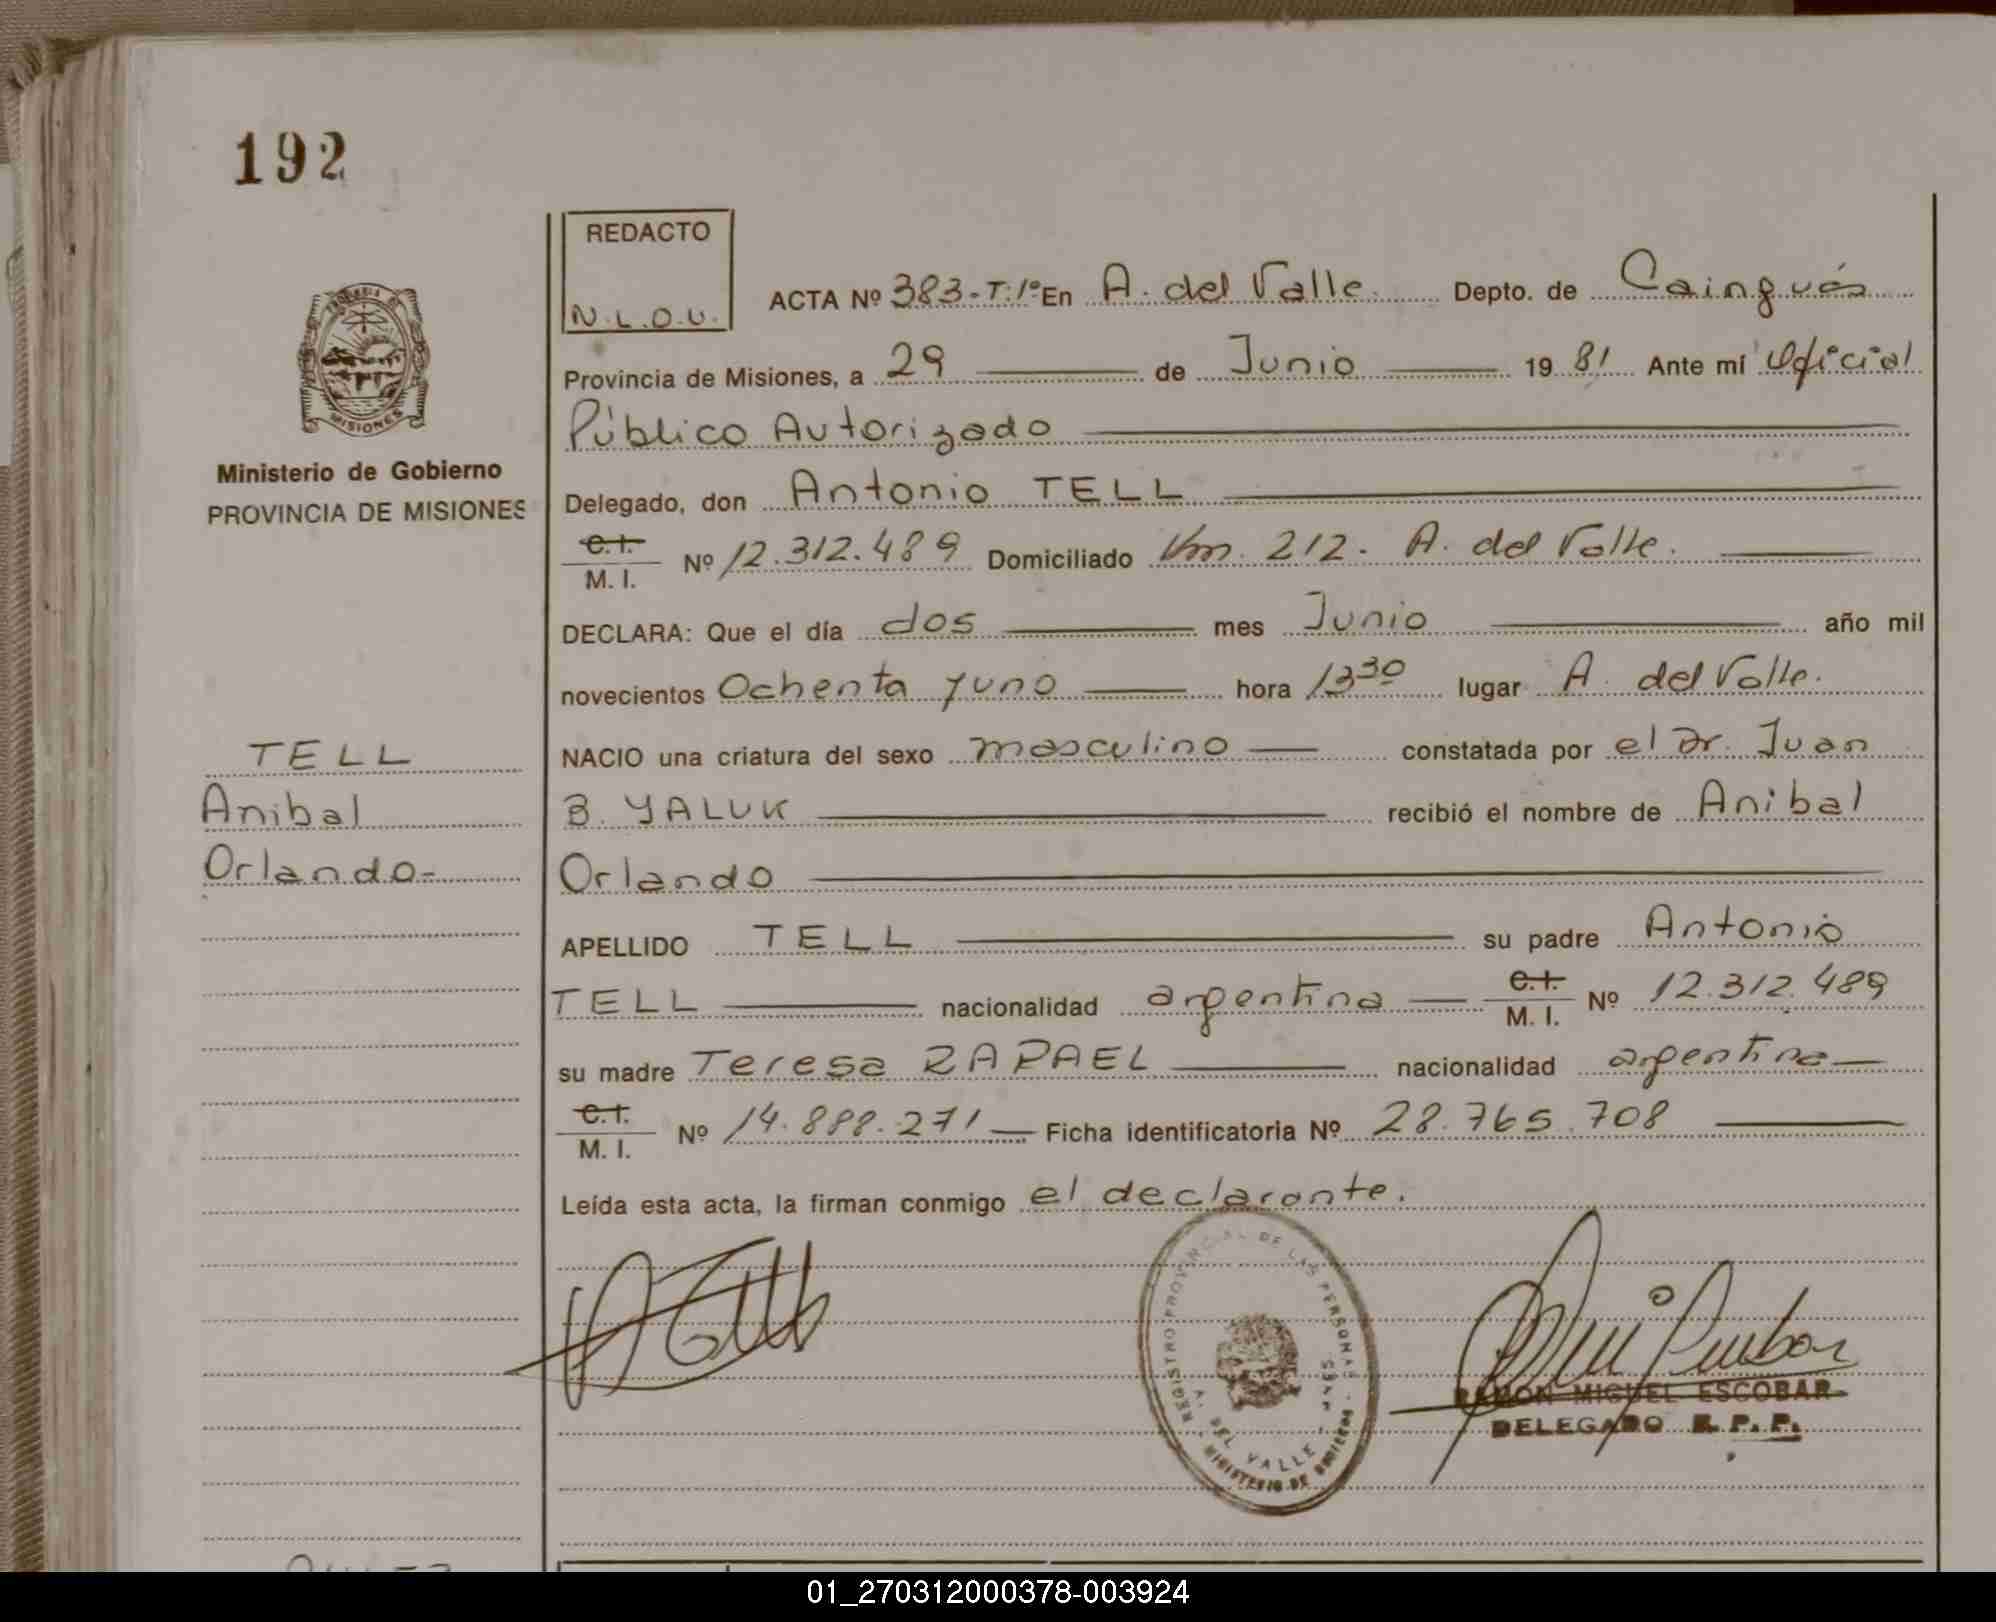 192
REDACTO
N.L.O.U.
ACTA Nº 383-T:1º En A. del Valle. Depto. de Cainguás
Provincia de Misiones, a 29 de Junio 19 81 Ante mí Oficial
Público Autorizado
Delegado, don Antonio TELL
C.I. M. I. Nº 12.312.489 Domiciliado Km. 212. A. del Valle.
DECLARA: Que el día dos mes Junio año mil
novecientos Ochenta y uno hora 13 30 lugar A. del Valle.
NACIO una criatura del sexo masculino constatada por el Dr. Juan
B. YALUK recibió el nombre de Anibal
Orlando
APELLIDO TELL su padre Antonio
TELL nacionalidad argentina C.I. M. I. Nº 12.312.489
su madre Teresa RAPAEL nacionalidad argentina
C.I. M. I. Nº 14.888.271 Ficha identificatoria Nº 28.765.708
Leída esta acta, la firman conmigo el declarante.
PROVINCIA DE MISIONES
Ministerio de Gobierno
PROVINCIA DE MISIONES
TELL
Anibal
Orlando-
REGISTRO PROVINCIAL DE LAS PERSONAS
A. DEL VALLE - MNES
MINISTERIO DE GOBIERNO
RAMON MIGUEL ESCOBAR
DELEGADO R. P. P.
01_270312000378-003924